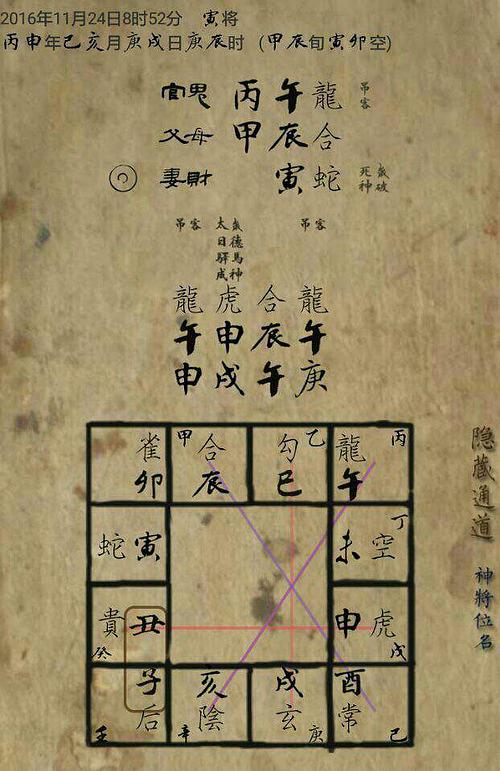 2016年11月24日8时52分 寅将
丙申年己亥月庚戌日庚辰时 (甲辰旬寅卯空)
官鬼 丙午龍 吊客
父母 甲辰合
妻財 寅蛇 死神 歲破
吊客 太日驿成 歲德馬神 吊客
龍 虎 合 龍
午 申 辰 午
申 戌 午 庚
雀 甲 合 勾 乙 龍 丙
卯 辰 巳 午
蛇 寅 未 空 丁
貴 丑 癸 申 虎 戌
子 亥 戌 酉
壬 后 辛 陰 玄 庚 常 己
隐藏通道
神將位名